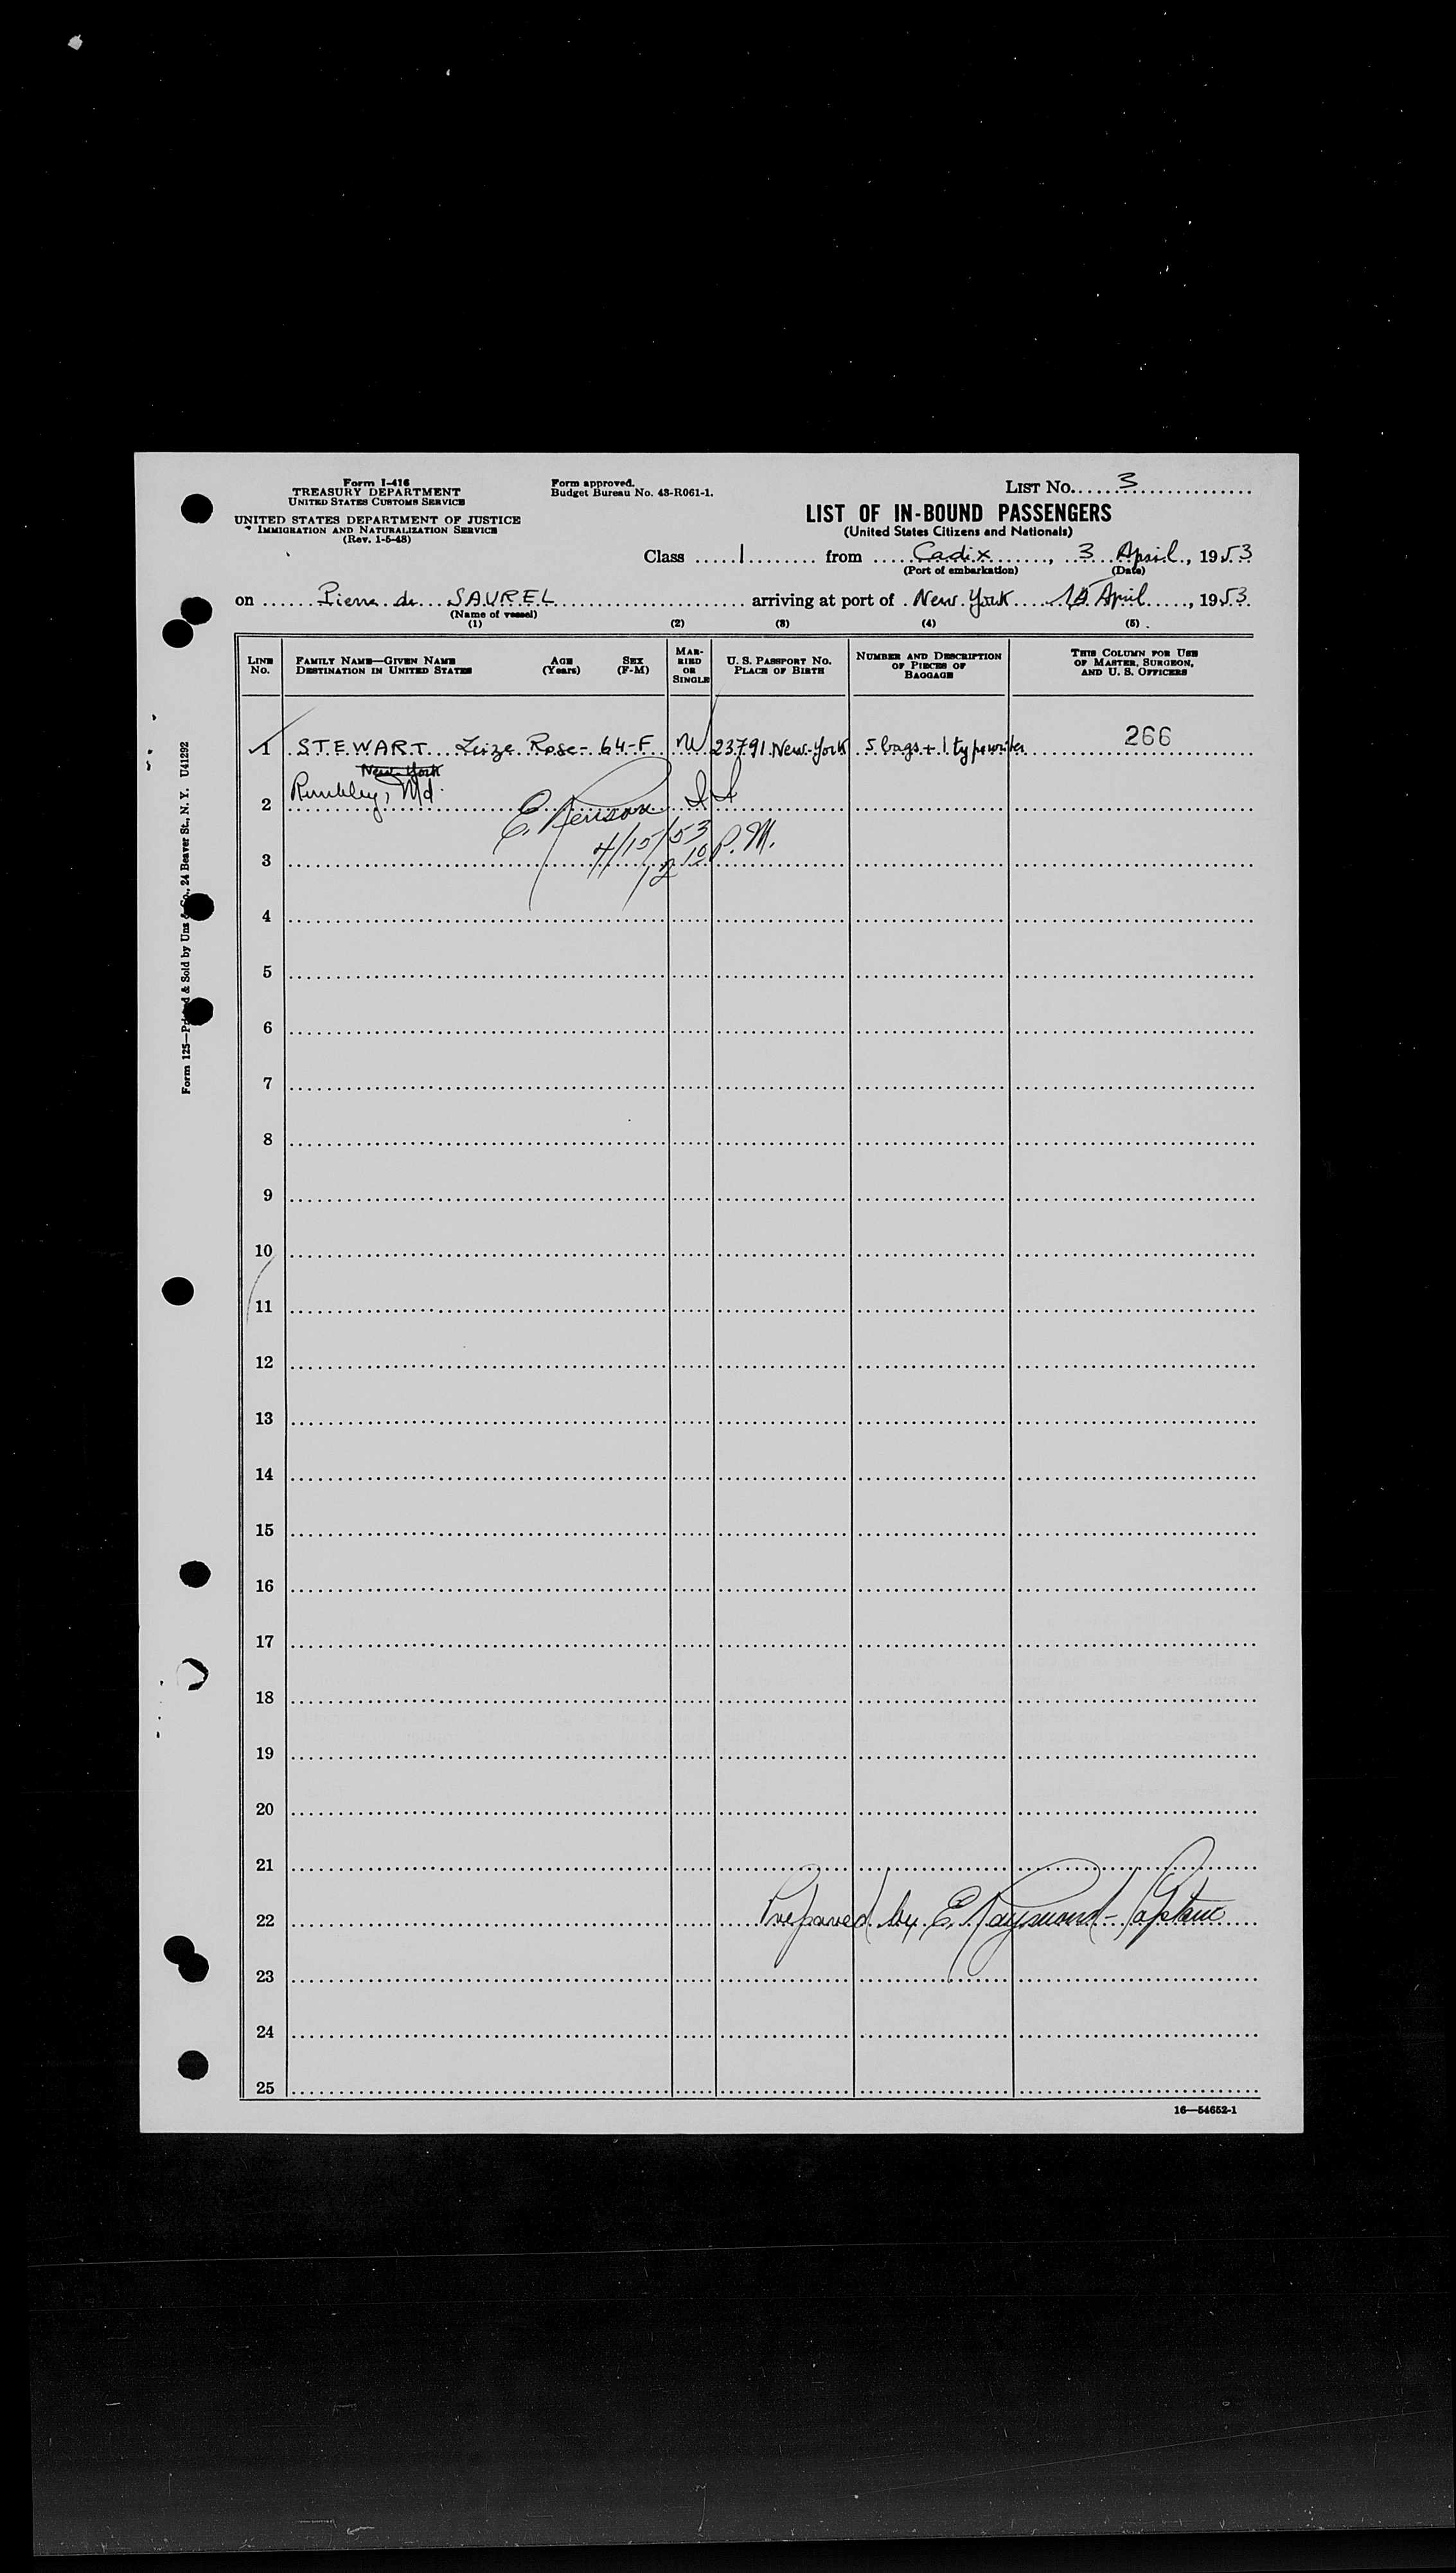 Form I-416
TREASURY DEPARTMENT
UNITED STATES CUSTOMS SERVICE
UNITED STATES DEPARTMENT OF JUSTICE
IMMIGRATION AND NATURALIZATION SERVICE
(Rev. 1-5-48)
Form approved.
Budget Bureau No. 43-R061-1.
LIST No. 3
LIST OF IN-BOUND PASSENGERS
(United States Citizens and Nationals)
Class 1 from Cadix, 3 April, 1953
(Port of embarkation) (Date)
on Pierre de SAUREL arriving at port of New York 15 April, 1953
(Name of vessel)
(1) (2) (3) (4) (5)
LINE No.
FAMILY NAME—GIVEN NAME
DESTINATION IN UNITED STATES
AGE (Years)
SEX (F-M)
MARRIED OR SINGLE
U. S. PASSPORT NO.
PLACE OF BIRTH
NUMBER AND DESCRIPTION OF PIECES OF BAGGAGE
THIS COLUMN FOR USE OF MASTER, SURGEON, AND U. S. OFFICERS
1 STEWART Rose - 64-F W 23791 New-York 5 bags + 1 typewriter 266
New-York
Md.
2
E.
4/15/53
3
12 10 P.M.
4
5
6
7
8
9
10
11
12
13
14
15
16
17
18
19
20
21
22 Prepared by E. Raymond - Captain
23
24
25
16—54652-1
Form 125—Printed & Sold by Unz & Co., 24 Beaver St., N. Y. U41292